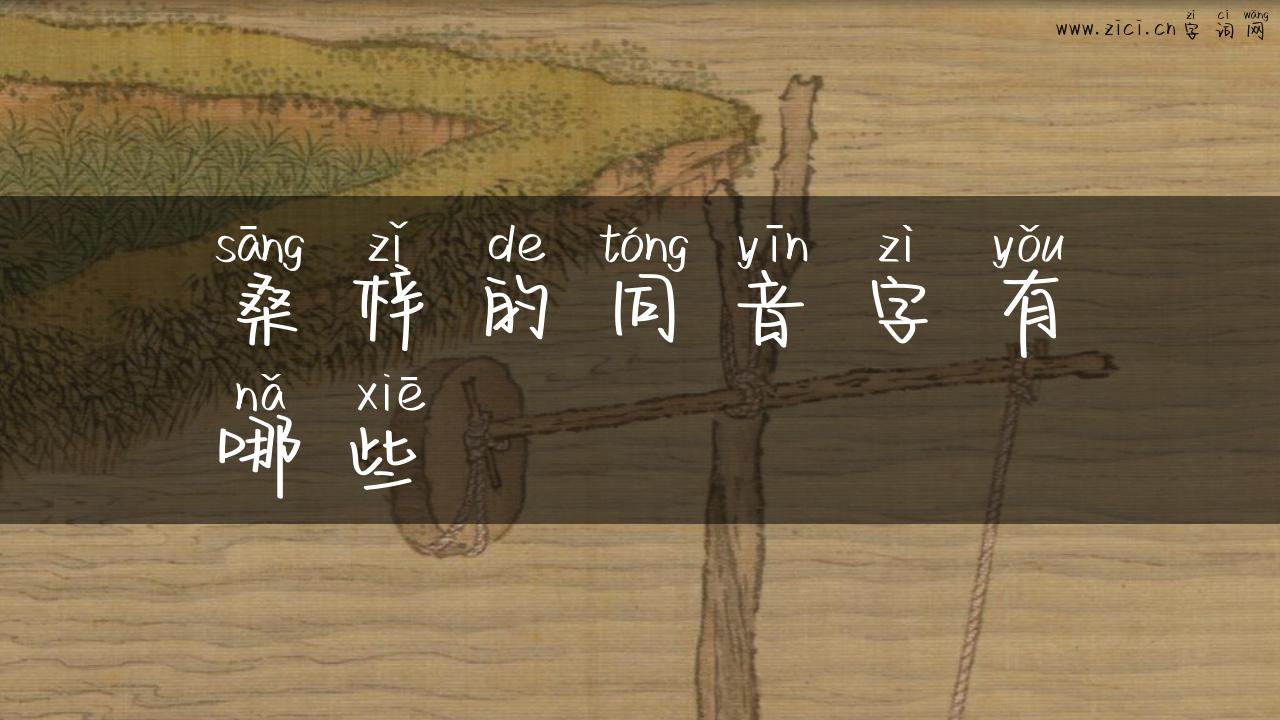 zì cí wǎng
www.zici.cn 字词网
sāng zǐ de tóng yīn zì yǒu
桑梓的同音字有
nǎ xiē
哪些